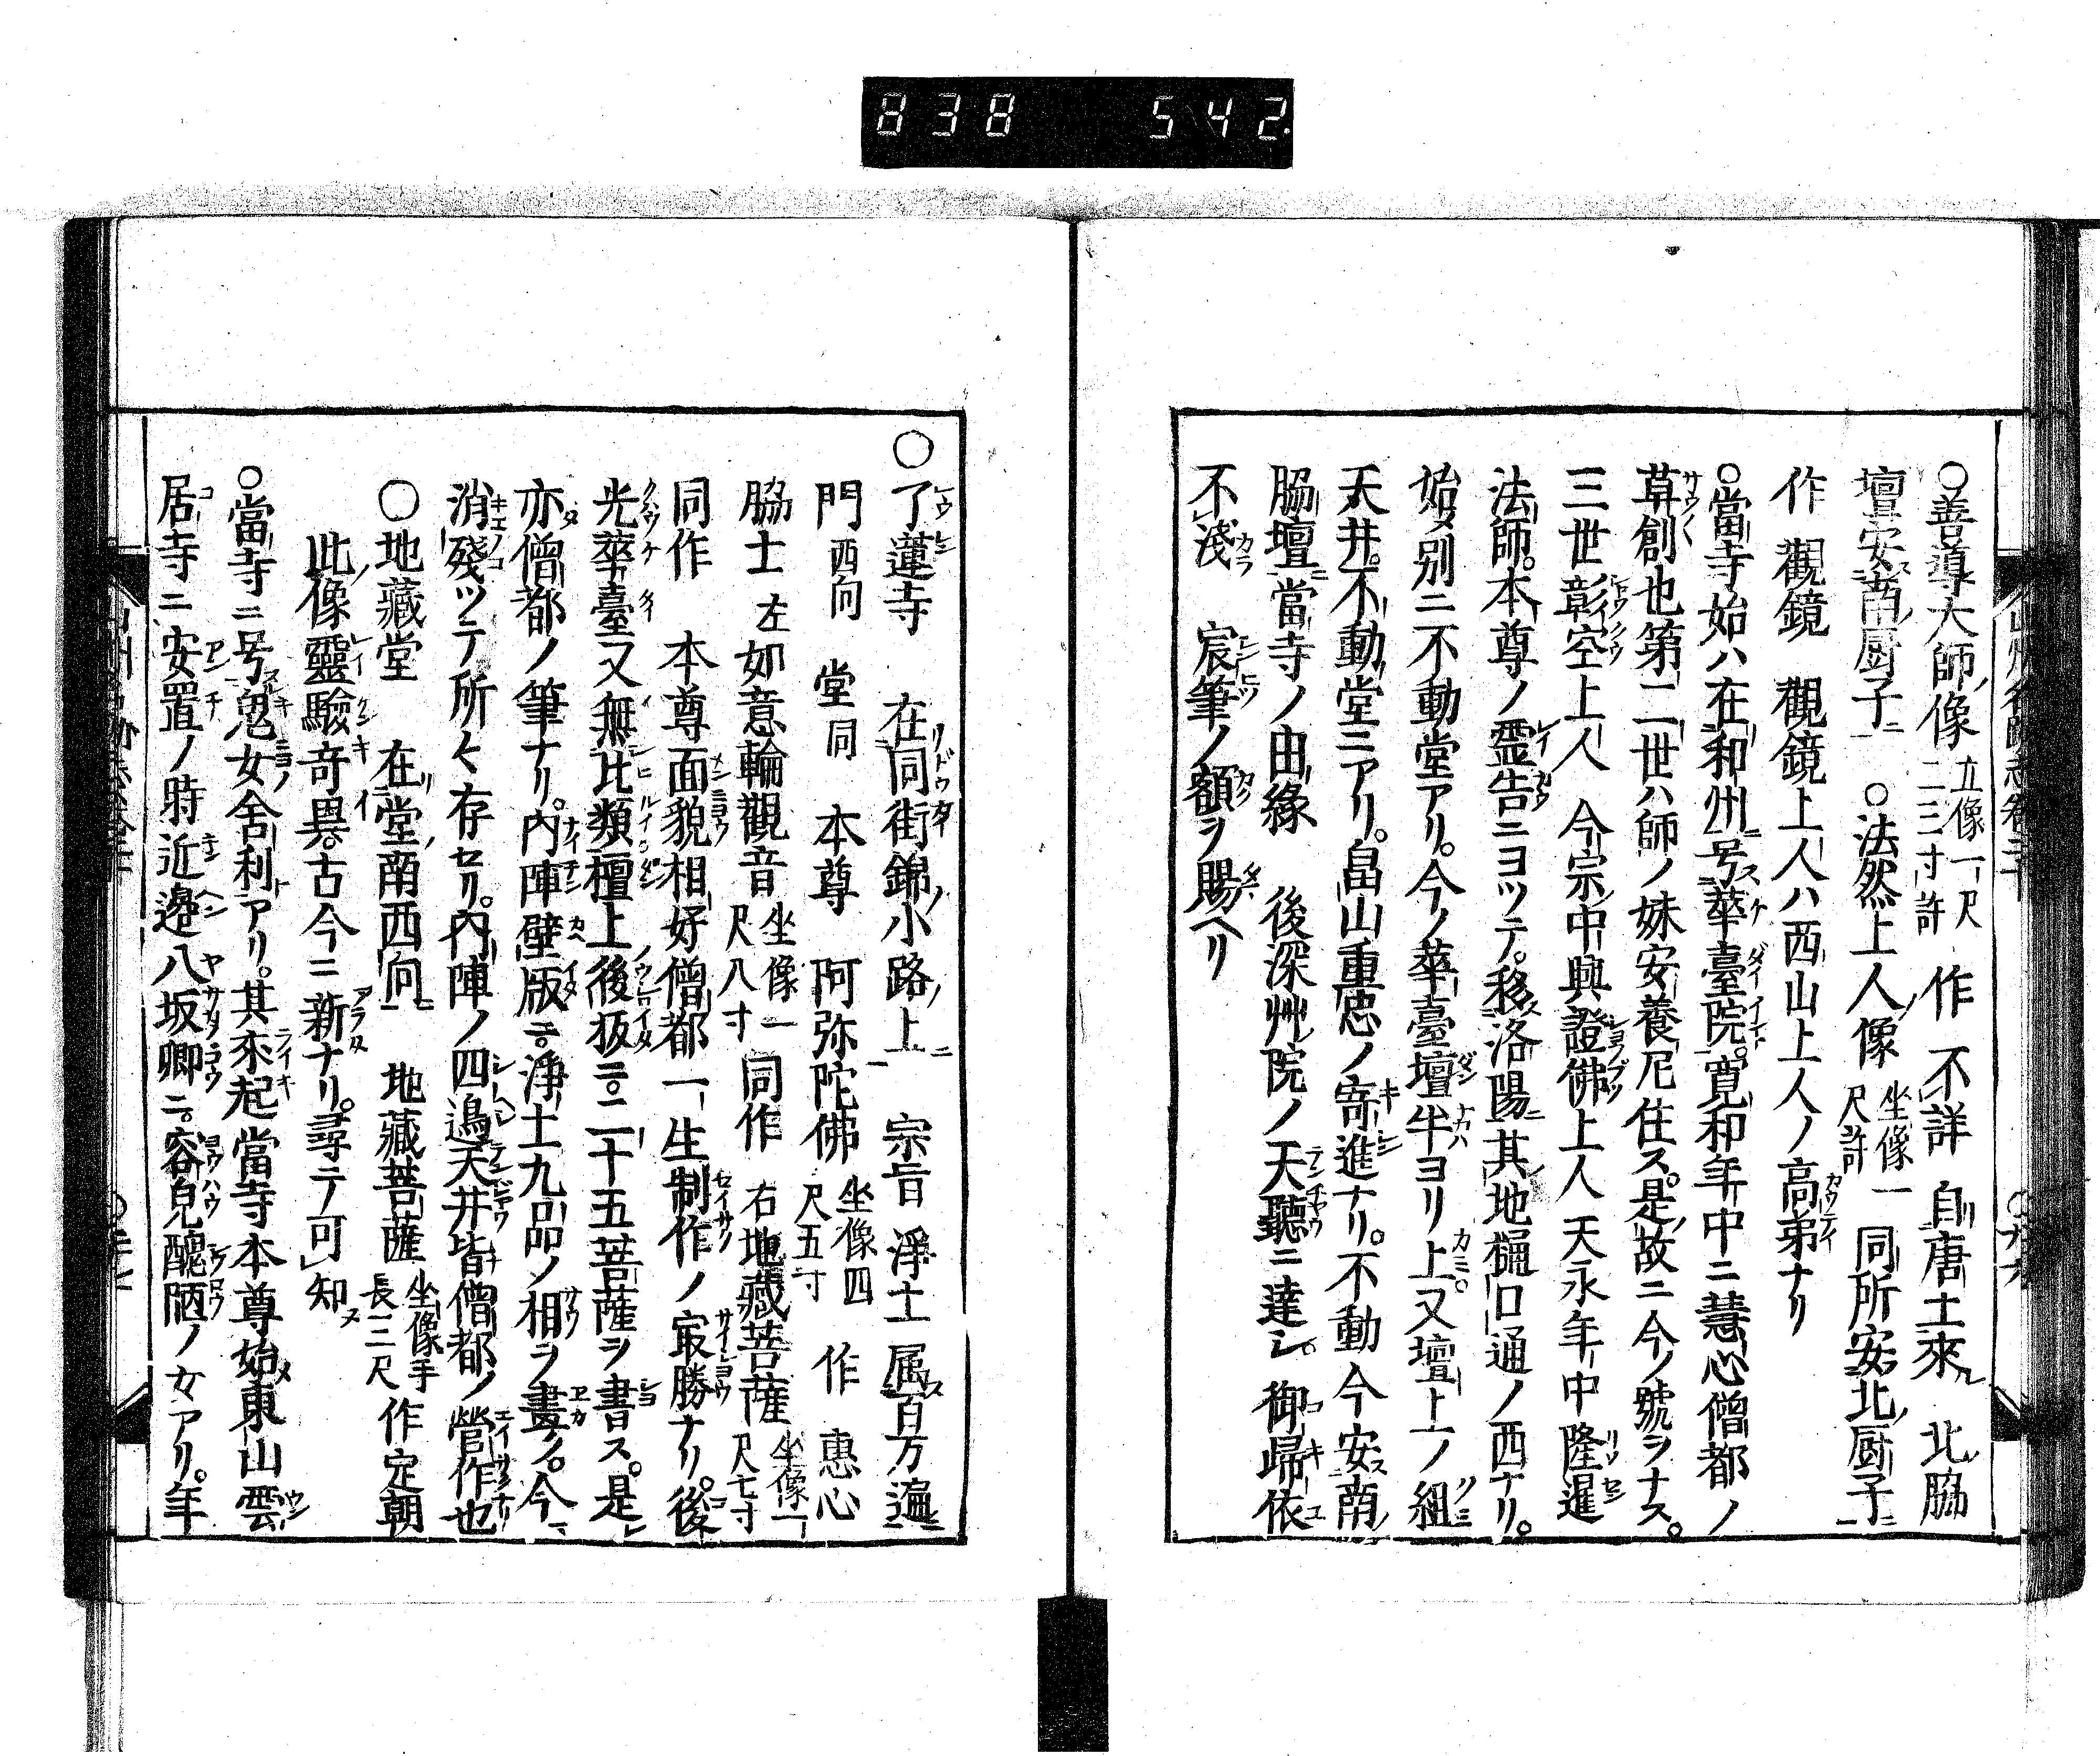 838 542
○善導大師像 立像一尺二三寸許 作 不詳 自唐土來 北脇
壇安南厨子 ○法然上人像 坐像一尺許 同所安北厨子
作 觀鏡 觀鏡上人ハ西山上人ノ高弟ナリ
○當寺始ハ在和州号華臺院寛和年中ニ慧心僧都ノ
草創也第二世ハ師ノ妹安養尼住ス是故ニ今ノ號ヲナス
三世彰空上人 今宗中興證佛上人 天永年中隆暹
法師本尊ノ靈告ニヨツテ移洛陽其地樋口通ノ西ナリ
始メ別ニ不動堂アリ今ノ華臺壇半ヨリ上又壇上ノ組
天井不動堂ニアリ畠山重忠ノ寄進ナリ不動今安南
脇壇當寺ノ由緣 後深艸院ノ天聽ニ達シ 御歸依
不淺 宸筆ノ額ヲ賜ヘリ
○了蓮寺 在同街錦小路上 宗旨 淨土 属百万遍
門 西向 堂 同 本尊 阿弥陀佛 坐像四尺五寸 作 惠心
脇士 左 如意輪觀音 坐像一尺八寸 同作 右 地藏菩薩 坐像一尺七寸
同作 本尊面貌相好僧都一生制作ノ最勝ナリ後
光華臺又無比類檀上後扳ニ二十五菩薩ヲ書ス是
亦僧都ノ筆ナリ内陣壁版ニ淨土九品ノ相ヲ畫ク今
消殘ツテ所々存セリ内陣ノ四邊天井皆僧都ノ營作也
○地藏堂 在堂南西向 地藏菩薩 坐像手長三尺 作 定朝
此像靈驗奇異古今ニ新ナリ尋テ可知
○當寺ニ号鬼女舍利アリ其來起當寺本尊始東山雲
居寺ニ安置ノ時近邊八坂卿ニ容皃醜陋ノ女アリ年